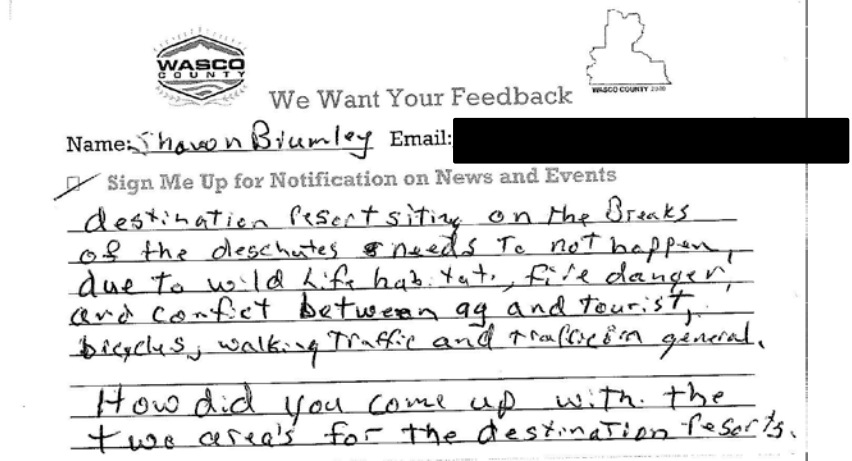 WASCO
COUNTY
WASCO COUNTY
We Want Your Feedback
Name: Sharon Brumley Email:
Sign Me Up for Notification on News and Events
destination resort siting on the Breaks
of the deschutes needs To not happen,
due to wild life habitat, fire danger,
and confict between ag and tourist,
bicycles, walking Traffic and traffic in general.
How did you come up with the
two area's for the destination resorts.